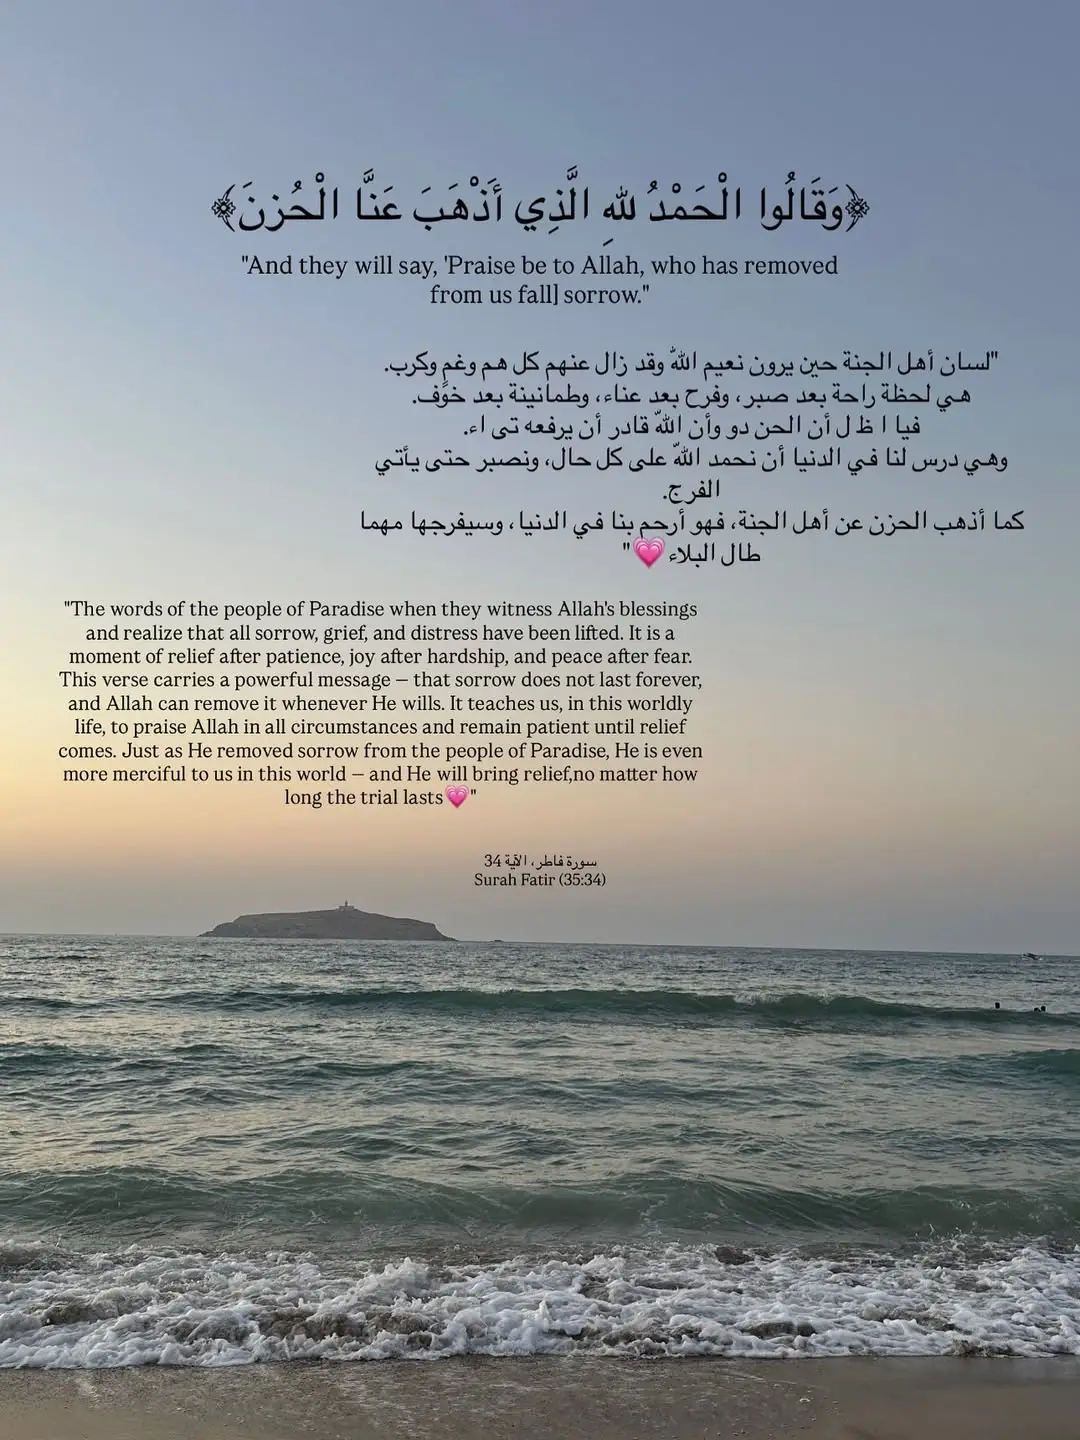 ﴿وَقَالُوا الْحَمْدُ للهِ الَّذِي أَذْهَبَ عَنَّا الْحُزنَ﴾
"And they will say, 'Praise be to Allah, who has removed
from us fall] sorrow."
"لسان أهل الجنة حين يرون نعيم اللهّ وقد زال عنهم كل هم وغمٍ وكرب.
هي لحظة راحة بعد صبر، وفرح بعد عناء، وطمانينة بعد خوٍف.
فيا ا ظ ل أن الحن دو وأن اللهّ قادر أن يرفعه تى اء.
وهي درس لنا في الدنيا أن نحمد اللهّ على كل حال، ونصبر حتى يأتي
الفرج.
كما أذهب الحزن عن أهل الجنة، فهو أرحم بنا في الدنيا، وسيفرجها مهما
طال البلاء💗"
"The words of the people of Paradise when they witness Allah's blessings
and realize that all sorrow, grief, and distress have been lifted. It is a
moment of relief after patience, joy after hardship, and peace after fear.
This verse carries a powerful message – that sorrow does not last forever,
and Allah can remove it whenever He wills. It teaches us, in this worldly
life, to praise Allah in all circumstances and remain patient until relief
comes. Just as He removed sorrow from the people of Paradise, He is even
more merciful to us in this world – and He will bring relief,no matter how
long the trial lasts💗"
سورة فاطر، الآية 34
Surah Fatir (35:34)